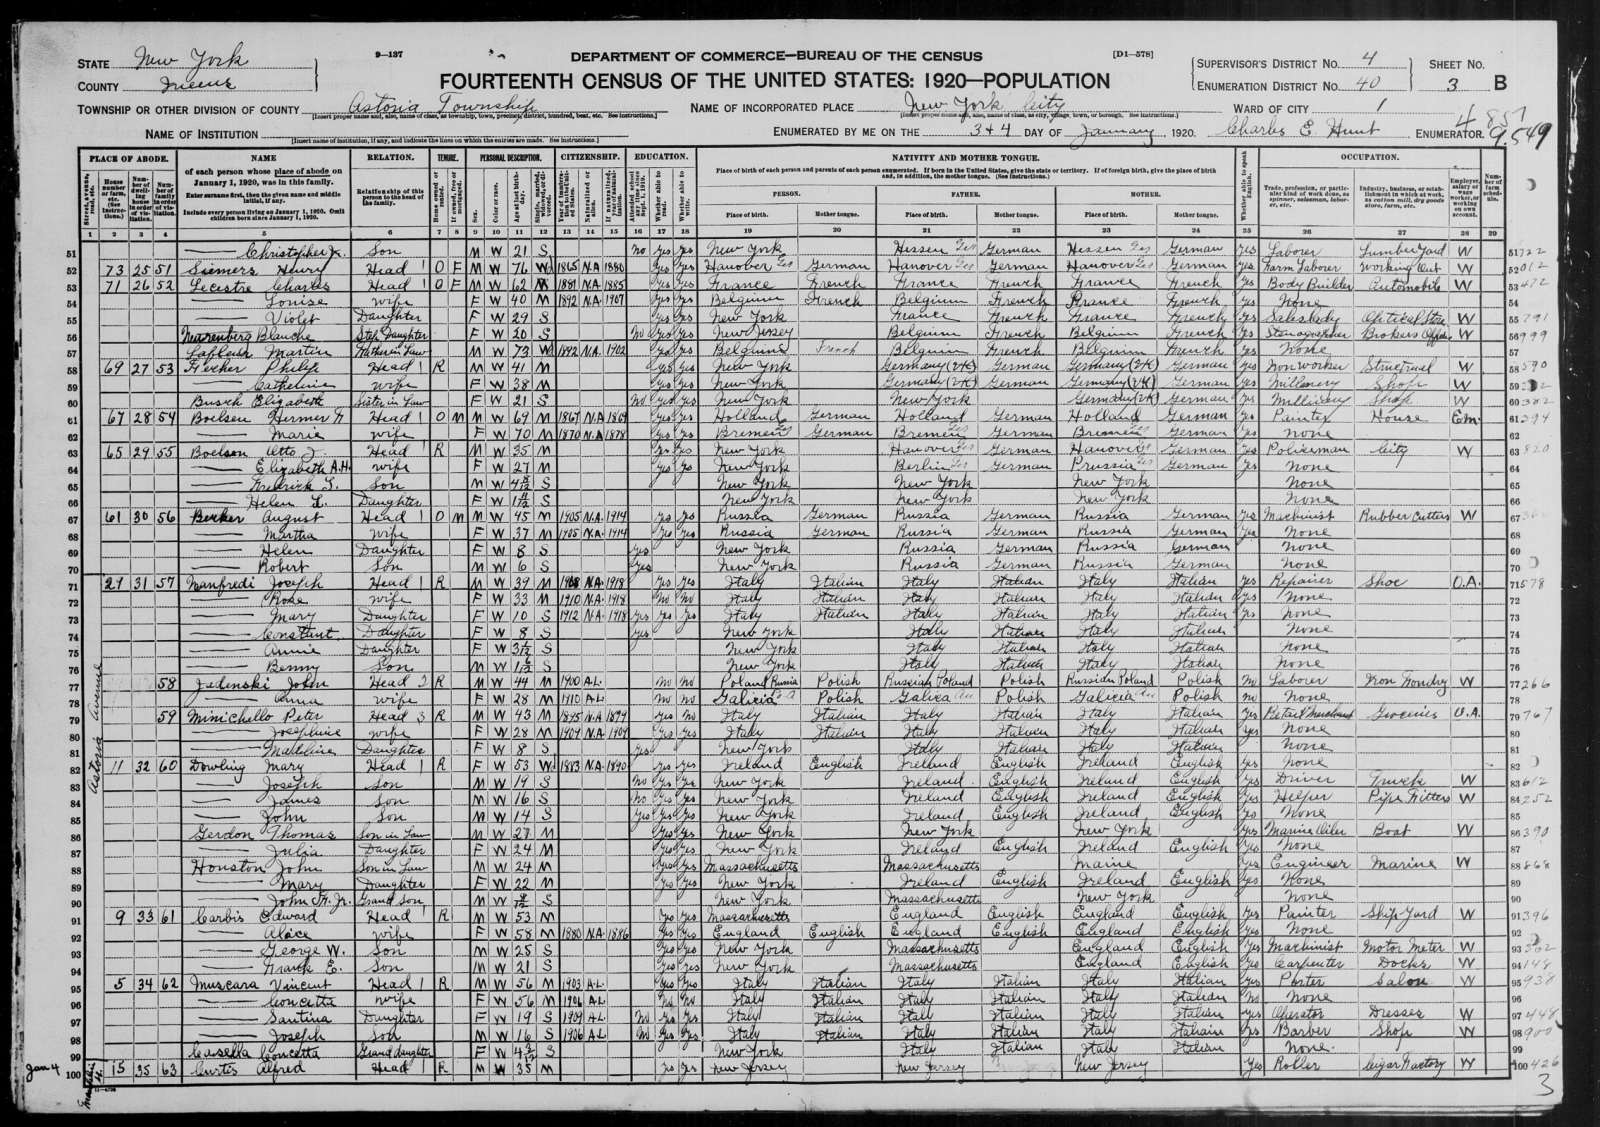 9—137
[D1-578]
DEPARTMENT OF COMMERCE—BUREAU OF THE CENSUS
FOURTEENTH CENSUS OF THE UNITED STATES: 1920—POPULATION
STATE New York
COUNTY Queens
SUPERVISOR'S DISTRICT No. 4
ENUMERATION DISTRICT No. 40
SHEET No. 3 B
TOWNSHIP OR OTHER DIVISION OF COUNTY Astoria Township
NAME OF INCORPORATED PLACE New York City
WARD OF CITY 1
NAME OF INSTITUTION
[Insert name of institution, if any, and indicate the lines on which the entries are made. See instructions.]
ENUMERATED BY ME ON THE 3+4 DAY OF January, 1920. Charles E. Hunt ENUMERATOR.
PLACE OF ABODE. NAME RELATION. TENURE. PERSONAL DESCRIPTION. CITIZENSHIP. EDUCATION. NATIVITY AND MOTHER TONGUE. OCCUPATION.
of each person whose place of abode on January 1, 1920, was in this family.
Enter surname first, then the given name and middle initial, if any.
Include every person living on January 1, 1920. Omit children born since January 1, 1920.
Relationship of this person to the head of the family.
Place of birth of each person and parents of each person enumerated. If born in the United States, give the state or territory. If of foreign birth, give the place of birth and, in addition, the mother tongue. (See instructions.)
PERSON. FATHER. MOTHER.
Place of birth. Mother tongue. Place of birth. Mother tongue. Place of birth. Mother tongue.
1 2 3 4 5 6 7 8 9 10 11 12 13 14 15 16 17 18 19 20 21 22 23 24 25 26 27 28 29
51 Christopher Jr. Son M W 21 S No Yes Yes New York Hessen Ger German Hessen Ger German Yes Laborer Lumber Yard W
52 73 25 51 Siemers Henry Head 1 O F M W 76 Wd 1865 NA 1880 Yes Yes Hanover Ger German Hanover Ger German Hanover Ger German Yes Farm Laborer Working Out W
53 71 26 52 Lecestre Charles Head 1 O F M W 62 M 1881 NA 1885 Yes Yes France French France French France French Yes Body Builder Automobile W
54 Louise wife F W 40 M 1892 NA 1907 Yes Yes Belgium French Belgium French France French Yes None
55 Violet Daughter F W 29 S Yes Yes New York France French France French Yes Saleslady Optical Store W
56 Blanche Step Daughter F W 20 S No Yes Yes New Jersey Belgium French Belgium French Yes Stenographer Brokers Office W
57 Lafleur Martin Father in Law M W 73 Wd 1892 N.A. 1902 Yes Yes Belgium French Belgium French Belgium French Yes None
58 69 27 53 Philip Head 1 R M W 41 M Yes Yes New York Germany German Germany German Yes Iron worker Structural W
59 Catherine wife F W 38 M Yes Yes New York Germany German Germany German Yes Millinery Shop W
60 Busch Elizabeth Sister in Law F W 21 S No Yes Yes New York New York Germany German Yes Millinery Shop W
61 67 28 54 Boelsen Hermer H Head 1 O M M W 69 M 1867 NA 1869 Yes Yes Holland German Holland German Holland German Yes Painter House Em.
62 Marie wife F W 70 M 1870 N.A 1878 Yes Yes Bremen Ger German Bremen Ger German Bremen Ger German Yes None
63 65 29 55 Boelson Otto J. Head 1 R M W 35 M Yes Yes New York Hanover Ger German Hanover Ger German Yes Policeman City W
64 Elizabeth A.H. wife F W 27 M Yes Yes New York Berlin Ger German Prussia Ger German Yes None
65 Fredrick L. Son M W S New York New York New York None
66 Helen L. Daughter F W S New York New York New York None
67 61 30 56 Becker August Head 1 O M M W 45 M 1905 N.A. 1914 Yes Yes Russia German Russia German Russia German Yes Machinist Rubber Cutters W
68 Martha wife F W 37 M 1905 N.A. 1914 Yes Yes Russia German Russia German Russia German Yes None
69 Helen Daughter F W 8 S Yes New York Russia German Russia German None
70 Robert Son M W 6 S Yes New York Russia German Russia German None
71 29 31 57 Manfredi Joseph Head 1 R M W 39 M 1908 N.A. 1918 Yes Yes Italy Italian Italy Italian Italy Italian Yes Repairer Shoe O.A.
72 Rose wife F W 33 M 1910 N.A. 1918 No No Italy Italian Italy Italian Italy Italian Yes None
73 Mary Daughter F W 10 S 1912 N.A. 1918 Yes Yes Yes Italy Italian Italy Italian Italy Italian Yes None
74 Constant. Daughter F W 8 S Yes New York Italy Italian Italy Italian None
75 Annie Daughter F W S New York Italy Italian Italy Italian None
76 Benny Son M W S New York Italy Italian Italy Italian None
77 58 Jedenski John Head 2 R M W 44 M 1900 AL. No No Poland Russia Polish Russian Poland Polish Russian Poland Polish No Laborer Iron Foundry W
78 Anna wife F W 28 M 1910 AL. No No Galicia Polish Galicia Polish Galicia Polish No None
79 59 Minichello Peter Head 3 R M W 43 M 1895 N.A 1899 Yes No Italy Italian Italy Italian Italy Italian Yes Retail Merchant Groceries O.A.
80 Josephine wife F W 28 M 1909 N.A. 1909 Yes Yes Italy Italian Italy Italian Italy Italian Yes None
81 Madeline Daughter F W 8 S Yes New York Italy Italian Italy Italian None
82 11 32 60 Dowling Mary Head 1 R F W 53 Wd 1883 N.A. 1890 Yes Yes Ireland English Ireland English Ireland English Yes None
83 Joseph son M W 19 S No Yes Yes New York Ireland English Ireland English Yes Driver Truck W
84 James son M W 16 S No Yes Yes New York Ireland English Ireland English Yes Helper Pipe Fitters W
85 John Son M W 14 S Yes Yes Yes New York Ireland English Ireland English Yes None
86 Gerdon Thomas Son in Law M W 27 M Yes Yes New York New York New York Yes Marine Oiler Boat W
87 Julia Daughter F W 24 M Yes Yes New York Ireland English Ireland English Yes None
88 Houston John Son in Law M W 24 M Yes Yes Massachusetts Massachusetts Maine Yes Engineer Marine W
89 Mary Daughter F W 22 M Yes Yes New York Ireland English Ireland English Yes None
90 John Jr. Grand Son M W S New York Massachusetts New York None
91 9 33 61 Carbis Edward Head 1 R M W 53 M Yes Yes Massachusetts England English England English Yes Painter Ship Yard W
92 Alice wife F W 58 M 1880 N.A. 1886 Yes Yes England English England English England English Yes None
93 George W. Son M W 25 S Yes Yes New York Massachusetts England English Yes Machinist Motor Meter W
94 Frank E. Son M W 21 S Yes Yes New York Massachusetts England English Yes Carpenter Docks W
95 5 34 62 Muscara Vincent Head 1 R M W 56 M 1903 A.L. Yes Yes Italy Italian Italy Italian Italy Italian Yes Porter Salon W
96 Concetta wife F W 56 M 1906 A.L. No No Italy Italian Italy Italian Italy Italian No None
97 Santina Daughter F W 19 S 1909 A.L. No Yes Yes Italy Italian Italy Italian Italy Italian Yes Operator Dresses W
98 Joseph Son M W 16 S 1906 A.L. No Yes Yes Italy Italian Italy Italian Italy Italian Yes Barber Shop W
99 Casella Concetta Grand daughter F W S New York Italy Italian Italy Italian None
100 15 35 63 Curtis Alfred Head 1 R M W 35 M Yes Yes New Jersey New Jersey New Jersey Yes Roller Cigar Factory W
Astoria Avenue
Jan 4
3